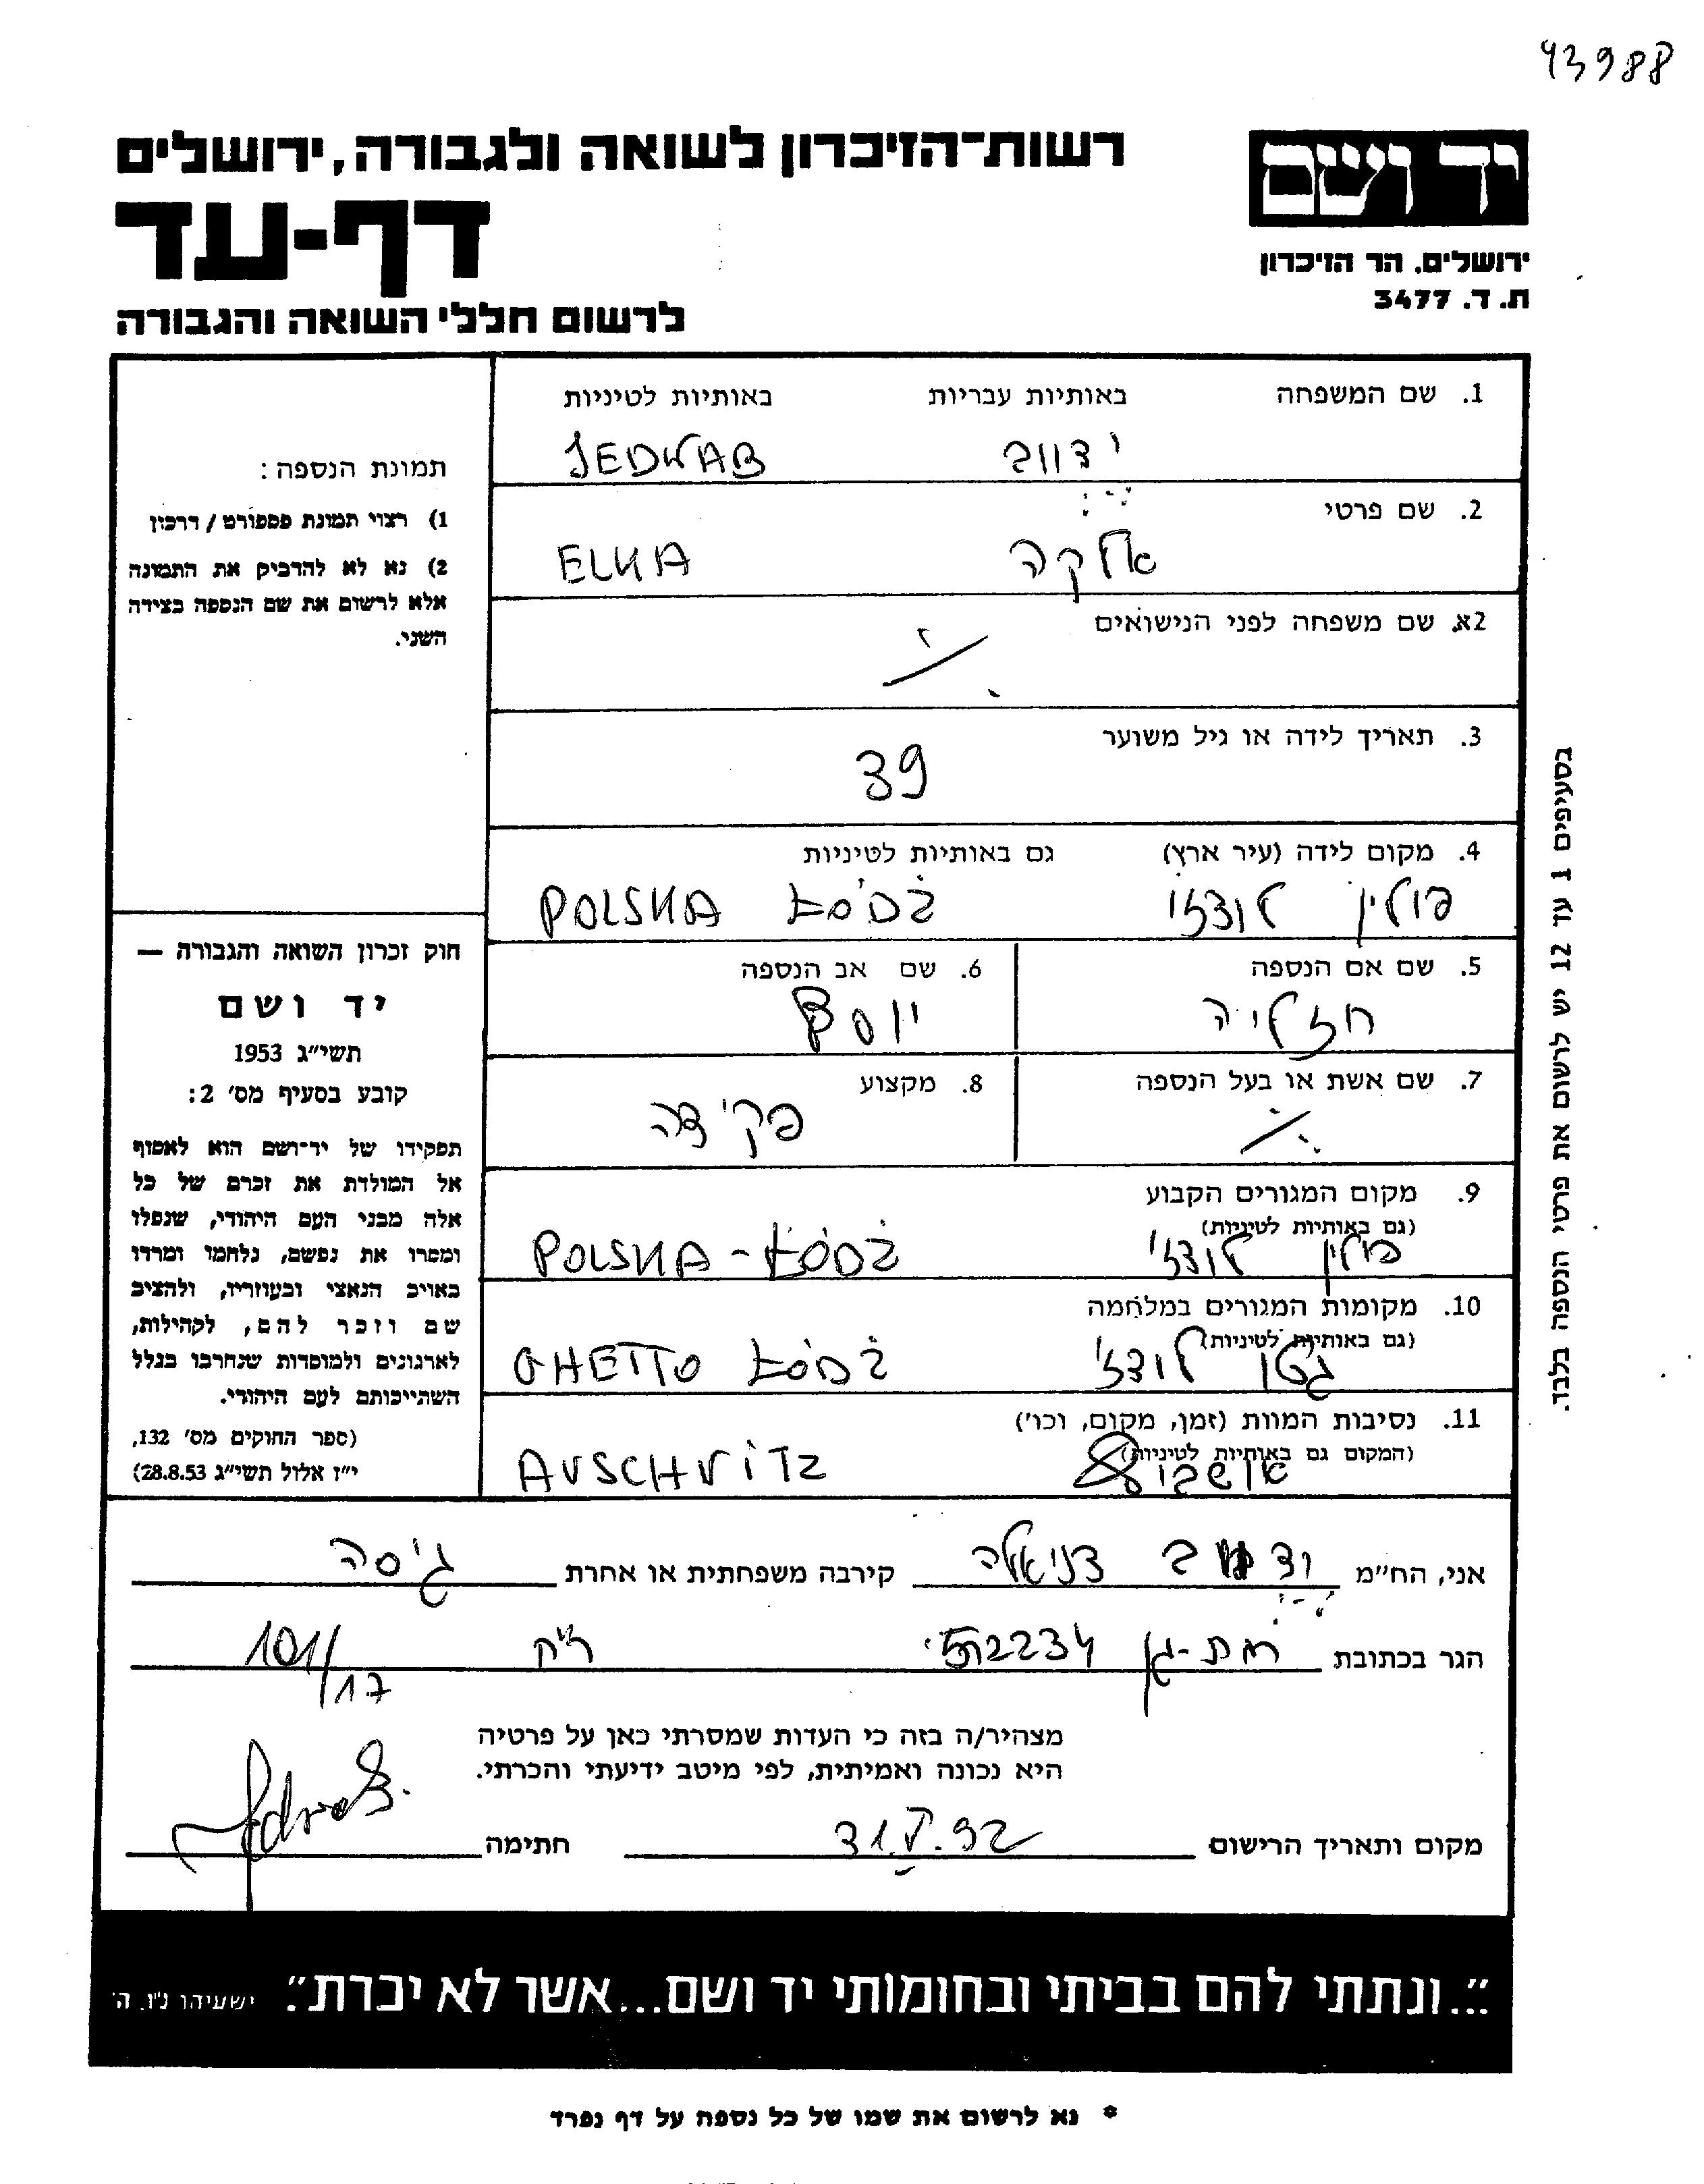 43988
רשות־הזיכרון לשואה ולגבורה, ירושלים
יד ושם
דף-עד
ירושלים. הר הזיכרון
ת. ד. 3477
לרשום חללי השואה והגבורה
1. שם המשפחה באותיות עבריות באותיות לטיניות
ידווב JEDWAB
2. שם פרטי
אלקה ELKA
2א. שם משפחה לפני הנישואים
3. תאריך לידה או גיל משוער
39
4. מקום לידה (עיר ארץ) גם באותיות לטיניות
פולין לודז' POLSKA ŁÓDŹ
5. שם אם הנספה 6. שם אב הנספה
יוסף
7. שם אשת או בעל הנספה 8. מקצוע
פקידה
9. מקום המגורים הקבוע
(גם באותיות לטיניות)
פולין לודז' POLSKA - ŁÓDŹ
10. מקומות המגורים במלחמה
(גם באותיות לטיניות)
גטו לודז' GHETTO ŁÓDŹ
11. נסיבות המוות (זמן, מקום, וכו')
(המקום גם באותיות לטיניות)
AUSCHVITZ
תמונת הנספה:
1) רצוי תמונת פספורט / דרכון
2) נא לא להדביק את התמונה
אלא לרשום את שם הנספה בצידה
השני.
חוק זכרון השואה והגבורה —
יד ושם
תשי"ג 1953
קובע בסעיף מס' 2:
תפקידו של יד־ושם הוא לאסוף
אל המולדת את זכרם של כל
אלה מבני העם היהודי, שנפלו
ומסרו את נפשם, נלחמו ומרדו
באויב הנאצי ובעוזריו, ולהציב
שם וזכר להם, לקהילות,
לארגונים ולמוסדות שנחרבו בגלל
השתייכותם לעם היהודי.
(ספר החוקים מס' 132,
י"ז אלול תשי"ג 28.8.53)
בסעיפים 1 עד 12 יש לרשום את פרטי הנספה בלבד.
אני, הח"מ דניאלה קירבה משפחתית או אחרת גיסה
הגר בכתובת רמת-גן 52234 101/17
מצהיר/ה בזה כי העדות שמסרתי כאן על פרטיה
היא נכונה ואמיתית, לפי מיטב ידיעתי והכרתי.
מקום ותאריך הרישום 31.V.92 חתימה
"...ונתתי להם בביתי ובחומותי יד ושם...אשר לא יכרת". ישעיהו נ"ו. ה'
* נא לרשום את שמו של כל נספה על דף נפרד